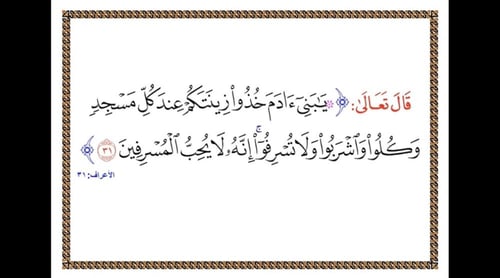 قَالَ تَعَالَىٰ: ﴿ ۞ يَـٰبَنِىٓ ءَادَمَ خُذُوا۟ زِينَتَكُمْ عِندَ كُلِّ مَسْجِدٍ
وَكُلُوا۟ وَٱشْرَبُوا۟ وَلَا تُسْرِفُوٓا۟ ۚ إِنَّهُۥ لَا يُحِبُّ ٱلْمُسْرِفِينَ ٣١ ﴾
الأعراف: ٣١